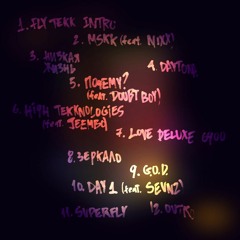 1. FLY TEKK INTRO
2. MSKK (feat. NIXX)
3. НИЗКАЯ
ЖИЗНЬ
4. DAYTONA
5. ПОЧЕМУ?
(feat. DOUBT BOY)
6. HIGH TEKKNOLOGIES
(feat. JEEMBO)
7. LOVE DELUXE
8. ЗЕРКАЛО
9. G.O.D.
10. DAY 1 (feat. SEVNZ)
11. SUPERFLY
12. OUTRO